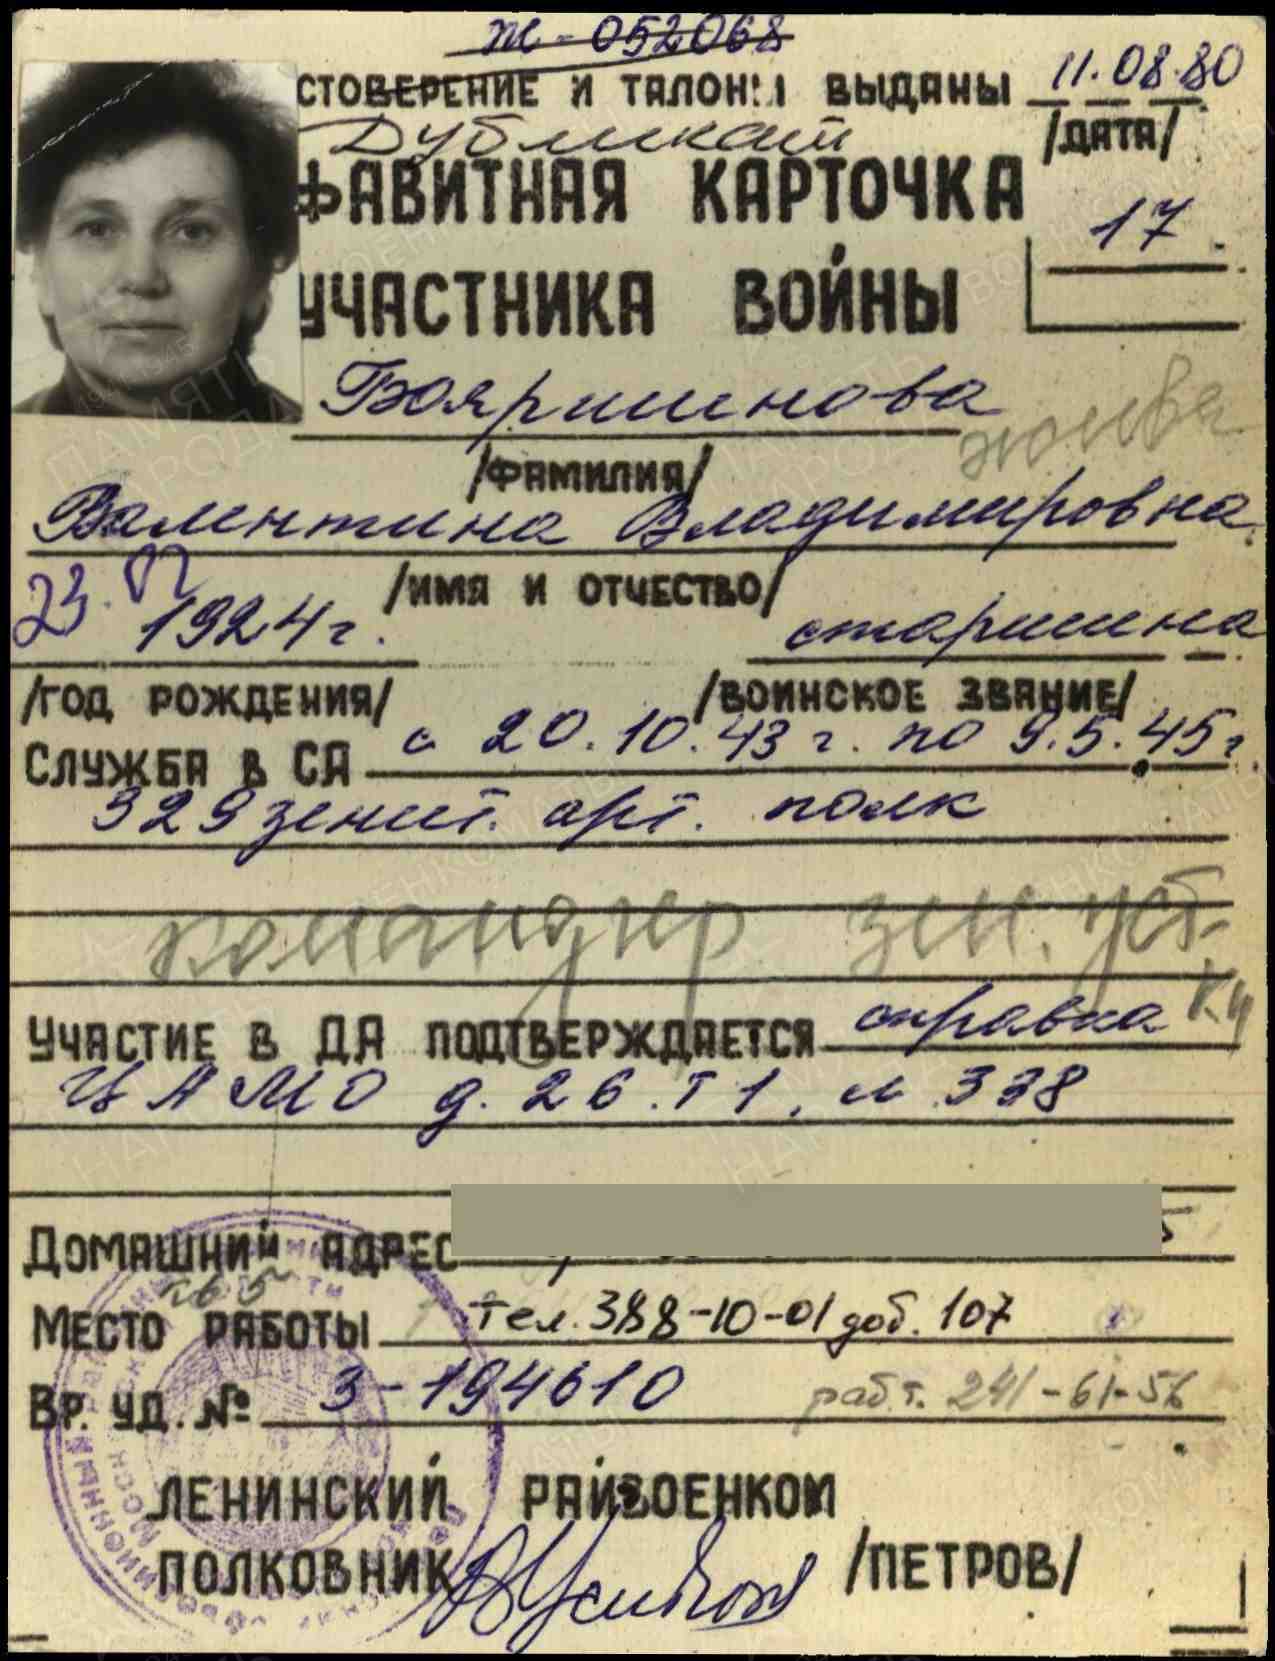 Ж-052068
СТОВЕРЕНИЕ И ТАЛОНЫ ВЫДАНЫ 11.08.80
Дубликат /ДАТА/
ФАВИТНАЯ КАРТОЧКА
17
УЧАСТНИКА ВОЙНЫ
Бояршинова
жива
/ФАМИЛИЯ/
Валентина Владимировна
/ИМЯ И ОТЧЕСТВО/
23.02 1924 г. старшина
/ГОД РОЖДЕНИЯ/ /ВОИНСКОЕ ЗВАНИЕ/
СЛУЖБА В СА с 20.10.43 г. по 9.5.45 г.
329 зенит. арт. полк
командир зен. уст-ки
УЧАСТИЕ В ДА ПОДТВЕРЖДАЕТСЯ справка
ЦАМО д. 26. т 1, л 338
ДОМАШНИЙ АДРЕС
МЕСТО РАБОТЫ тел. 388-10-01 доб. 107
ВР. УД. № 3-194610 раб. т. 241-61-56
ЛЕНИНСКИЙ РАЙВОЕНКОМ
ПОЛКОВНИК /ПЕТРОВ/